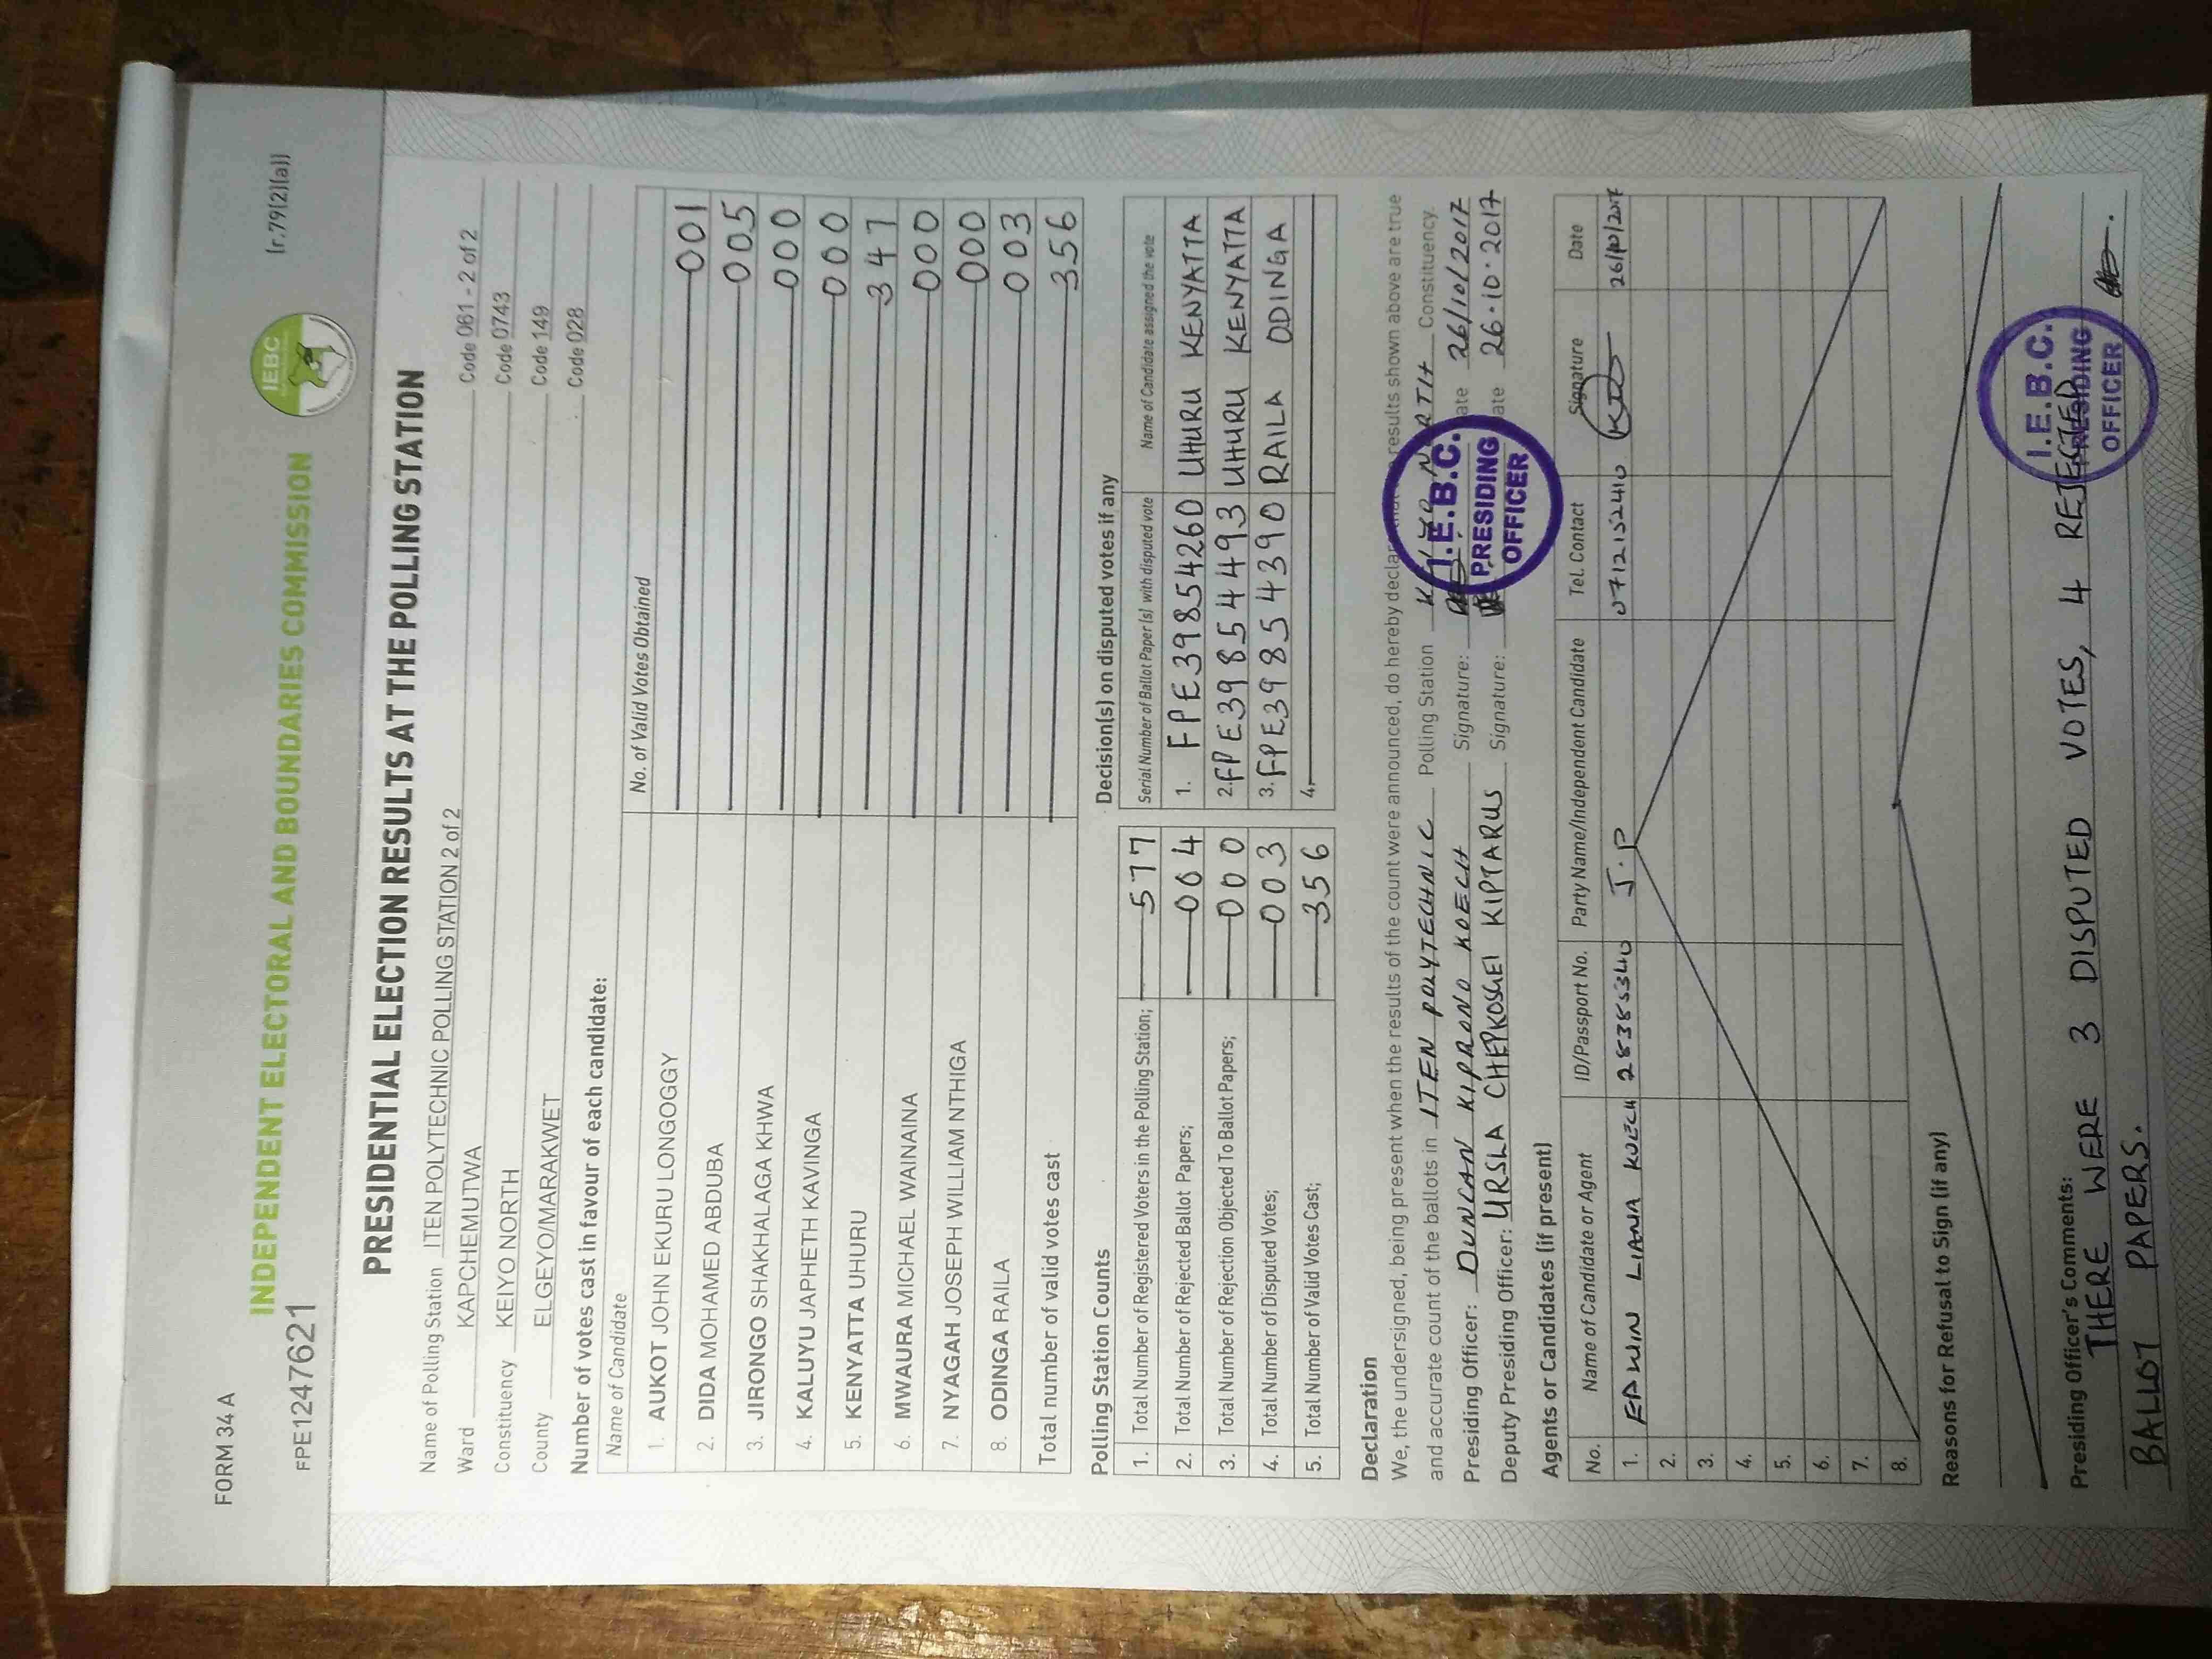 FORM 34 A
FPE1247621
INDEPENDENT ELECTORAL AND BOUNDARIES COMMISSION
IEBC
(r.79(2)(a))
PRESIDENTIAL ELECTION RESULTS AT THE POLLING STATION
Name of Polling Station ITEN POLYTECHNIC POLLING STATION 2 of 2 Code 061 - 2 of 2
Ward KAPCHEMUTWA Code 0743
Constituency KEIYO NORTH Code 149
County ELGEYO/MARAKWET Code 028
Number of votes cast in favour of each candidate:
Name of Candidate No. of Valid Votes Obtained
1. AUKOT JOHN EKURU LONGOGGY 001
2. DIDA MOHAMED ABDUBA 005
3. JIRONGO SHAKHALAGA KHWA 000
4. KALUYU JAPHETH KAVINGA 000
5. KENYATTA UHURU 347
6. MWAURA MICHAEL WAINAINA 000
7. NYAGAH JOSEPH WILLIAM NTHIGA 000
8. ODINGA RAILA 003
Total number of valid votes cast 356
Polling Station Counts
1. Total Number of Registered Voters in the Polling Station; 577
2. Total Number of Rejected Ballot Papers; 004
3. Total Number of Rejection Objected To Ballot Papers; 000
4. Total Number of Disputed Votes; 003
5. Total Number of Valid Votes Cast; 356
Decision(s) on disputed votes if any
Serial Number of Ballot Paper (s) with disputed vote Name of Candidate assigned the vote
1. FPE39854260 UHURU KENYATTA
2. FPE39854493 UHURU KENYATTA
3. FPE39854390 RAILA ODINGA
4.
Declaration
We, the undersigned, being present when the results of the count were announced, do hereby declare results shown above are true
and accurate count of the ballots in ITEN POLYTECHNIC Polling Station Constituency.
Presiding Officer: DUNCAN KIPRONO KOECH Signature: 26/10/2017
Deputy Presiding Officer: URSLA CHEPKOSGEI KIPTARUS Signature: 26.10.2017
I.E.B.C.
PRESIDING
OFFICER
Agents or Candidates (if present)
No. Name of Candidate or Agent ID/Passport No. Party Name/Independent Candidate Tel. Contact Signature Date
1. EDWIN LIANA KOECH 28385340 J.P 0712152410 26/10/2017
2.
3.
4.
5.
6.
7.
8.
Reasons for Refusal to Sign (if any)
Presiding Officer's Comments:
THERE WERE 3 DISPUTED VOTES, 4 REJECTED
BALLOT PAPERS.
I.E.B.C.
PRESIDING
OFFICER